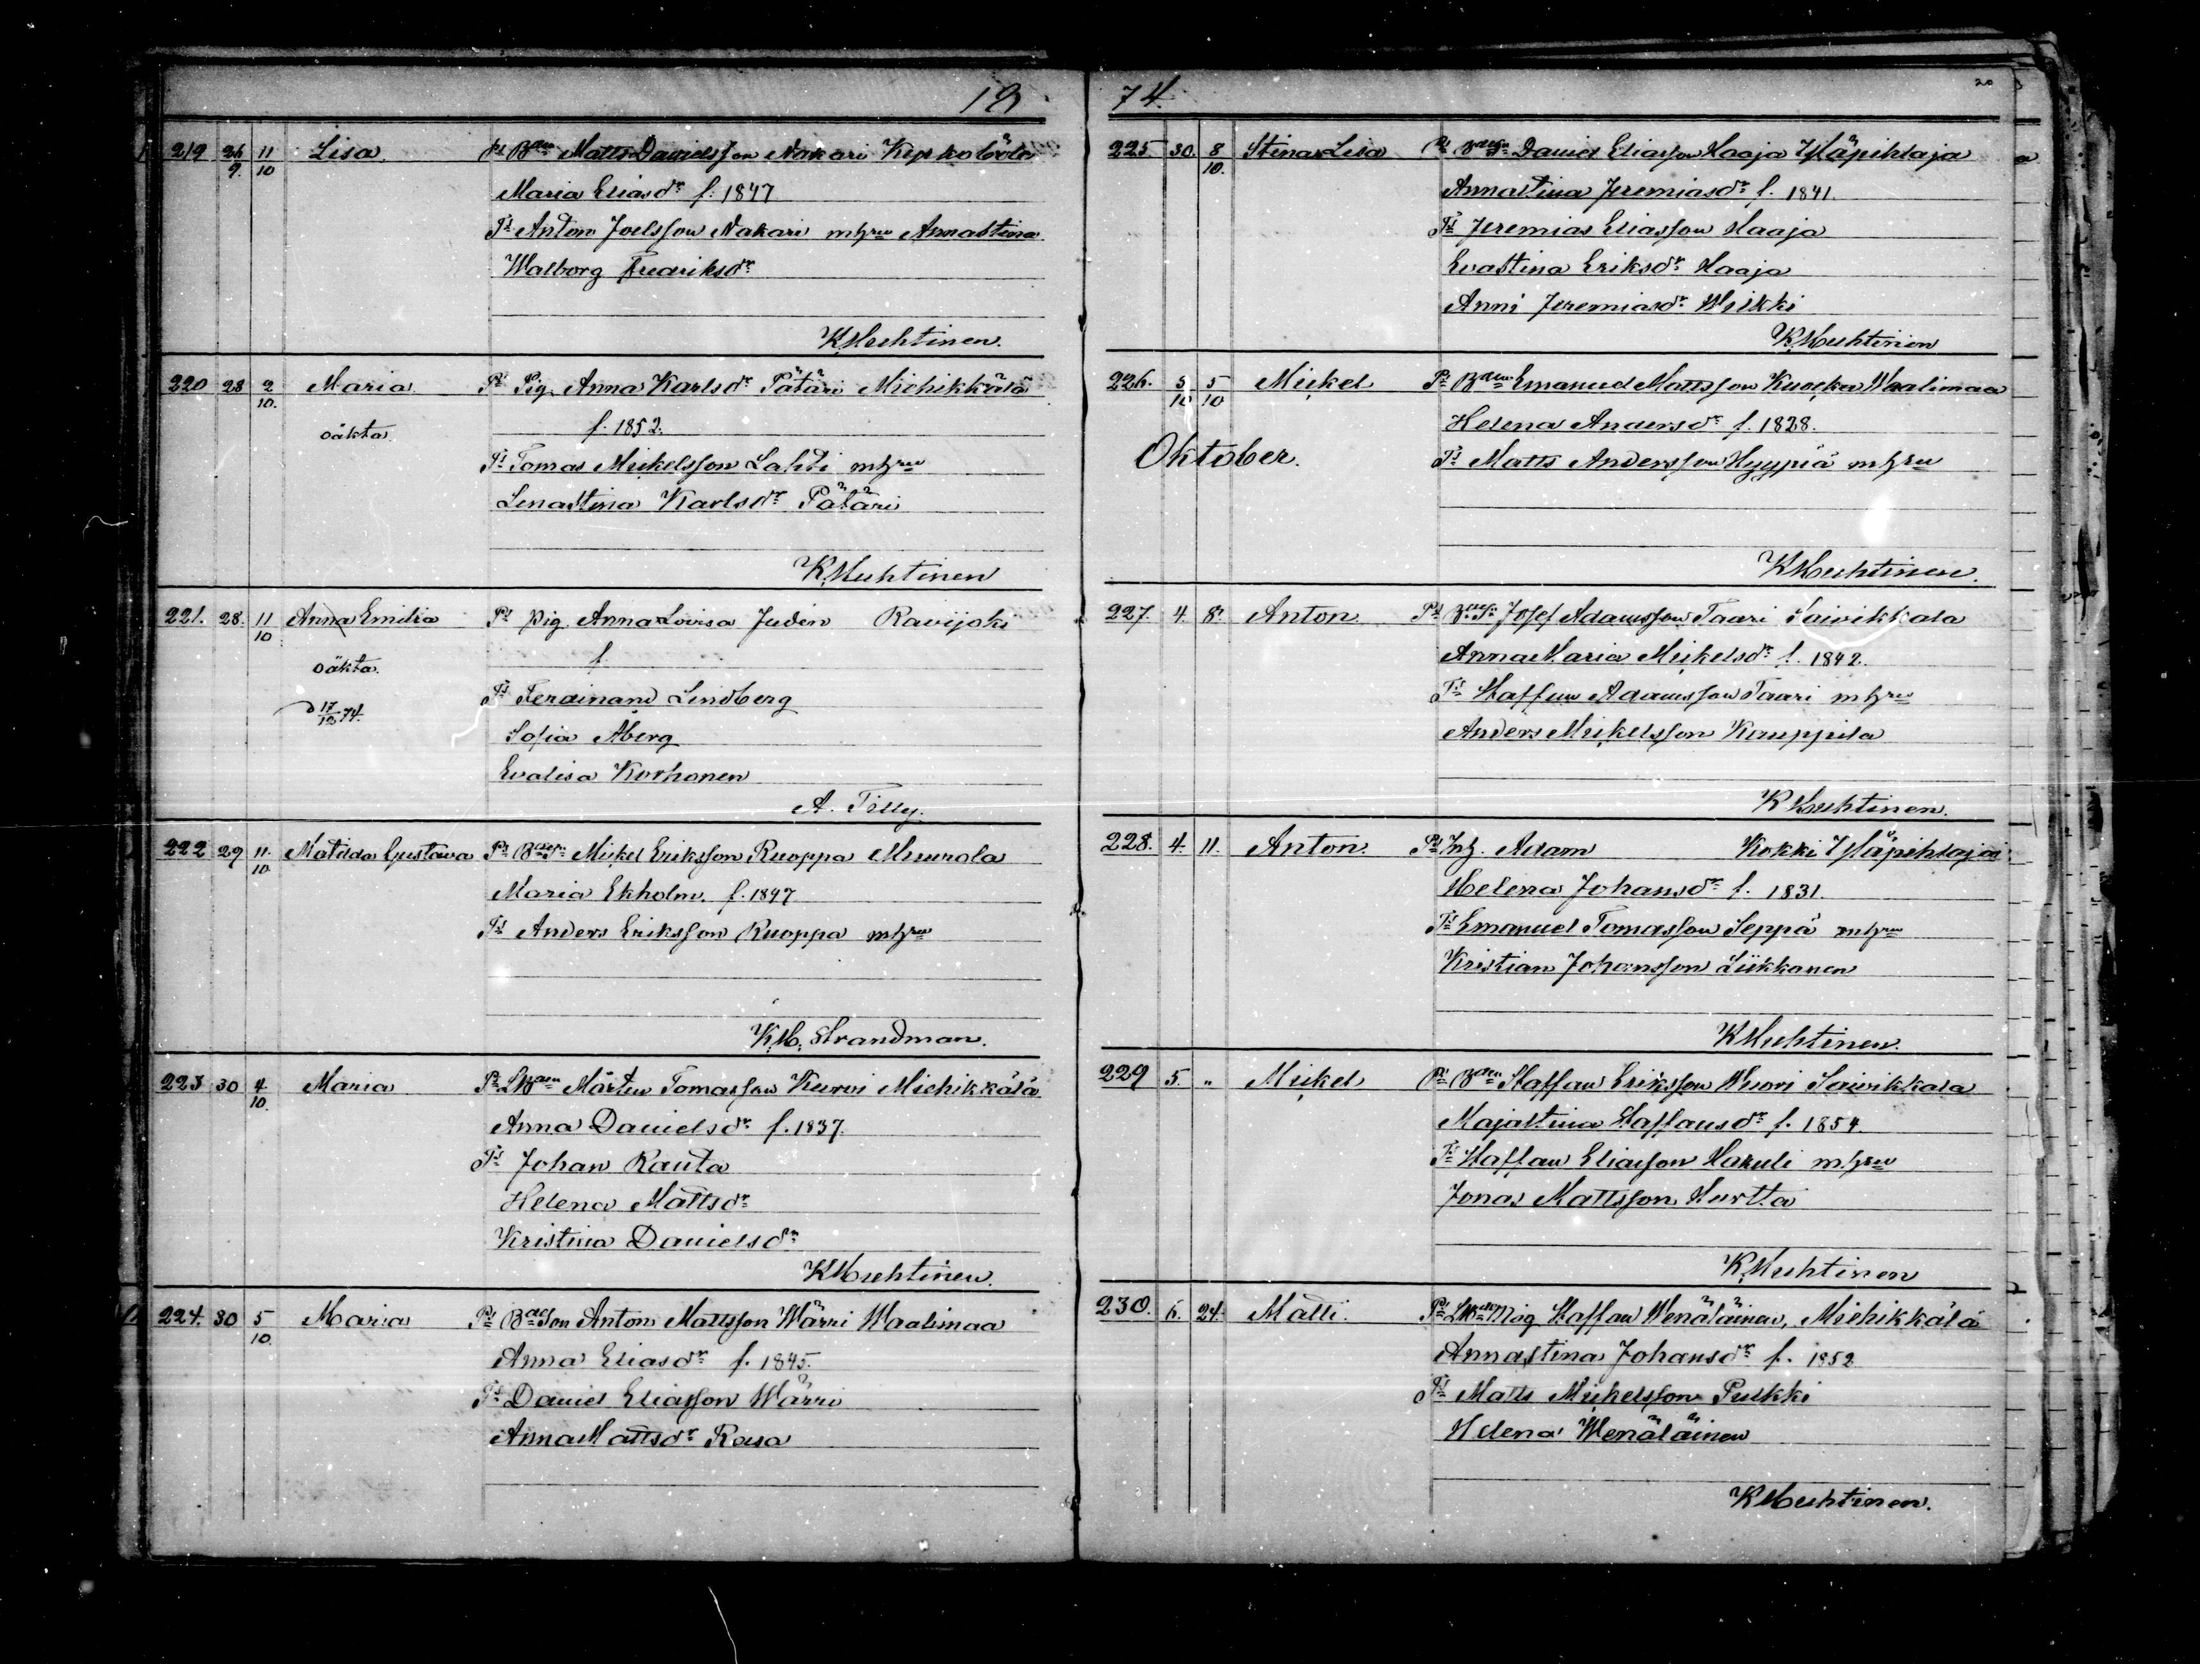 18
219 26/9 11/10 Lisa Ps Bdn Matts Davidsson Nakari
Maria Eliasdr f. 1847
Ts Anton Joelsson Nakari m hru Annastina
Walborg Fredriksdr
K.Muhtinen.
220 28 2/10. Maria Ps Pig. Anna Karlsdr Pätäri Miehikkälä
oäkta. f. 1852.
Ts Tomas Mickelsson Lahti m hru
Lenastina Karlsdr Pätäri
K.Muhtinen
221. 28. 11/10 Anna Emilia Ps pig. Anna Lovisa Judin Ravijoki
oäkta. f.
17/12 74. Ts Ferdinand Lindberg
Sofia Åberg
Evalisa Korhonen
A. Tilly.
222 29 11./10 Matilda Gustava Ps Mickel Eriksson Ruoppa Muurola
Maria Ekholm. f. 1847
Ts Anders Eriksson Ruoppa m hru
K.M. Strandman.
223 30 4/10. Maria Ps Mårten Tomasson Kurvi Miehikkälä
Anna Danielsdr f. 1837.
Ts Johan Rauta
Helena Mattsdr
Kristina Danielsdr
K Muhtinen.
224. 30 5/10. Maria Ps Bdson Anton Mattsson Wärri Waalimaa
Anna Eliasdr f. 1845.
Ts Daniel Eliasson Wärri
Anna Mattsdr Rasa
74.
20
225 30. 8/10. Stina Lisa Ps David Eliasson Haaja Yläpihlaja
Annastina Jeremiasdr f. 1841.
Ts Jeremias Eliasson Haaja
Evastina Eriksdr Haaja
Anni Jeremiasdr Weikki
K.Muhtinen
226. 3/10 5/10 Mickel Ps Bdn Emanuel Mattsson Waalimaa
Helena Andersdr f. 1828.
Oktober. Ts Matts Andersson Hyypiä m hru
K Muhtinen.
227. 4. 8. Anton Ps Josef Adamsson Taari Saivikkala
Anna Maria Mickelsdr f. 1842.
Ts Staffan Adamsson Taari m hru
Anders Mickelsson Kauppila
K Muhtinen.
228. 4. 11. Anton. Ps Inh. Adam Kokki Yläpihlaja
Helena Johansdr f. 1831.
Ts Emanuel Tomasson Seppä m hru
Kristian Johansson Liikkanen
K Muhtinen.
229 5. " Mickel Ps Bdn Staffan Eriksson Wuori Saivikkala
Majastina Staffansdr f. 1854.
Ts Staffan Eliasson Hakuli m hru
Jonas Mattsson Hurtta
K.Muhtinen
230. 6. 24. Matti. Ps Staffan Wenäläinen, Miehikkälä
Annastina Johansdr f. 1852
Ts Matts Mickelsson Pulkki
Helena Wenäläinen
K Muhtinen.